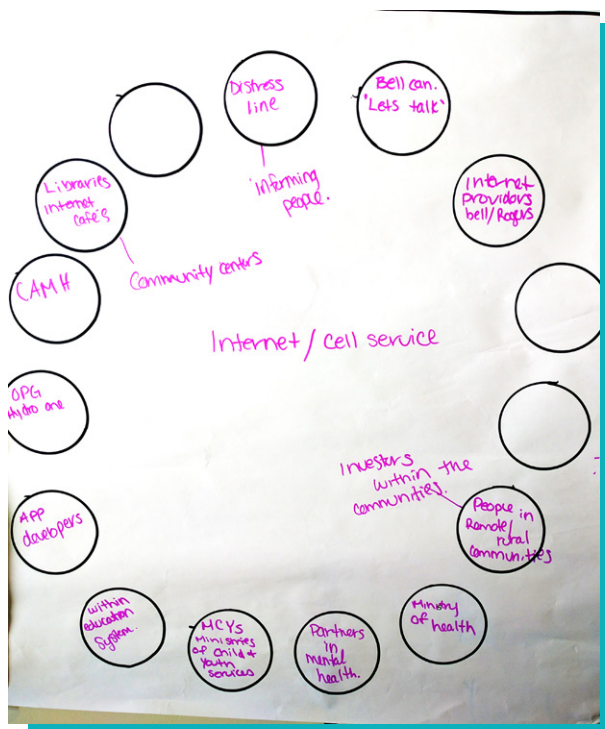 Distress
line
informing
people.
Bell can.
"Lets talk"
Internet
providors
bell/Rogers
Libraries
internet
café's
Community centers
CAMH
Internet / cell service
OPG
Hydro one
Investors
within the
communities.
People in
Remote/
rural
communities
?
APP
developers
within
education
System.
MCYs
Ministries
of Child &
Youth
Services
Partners
in
mental
health.
Ministry
of health